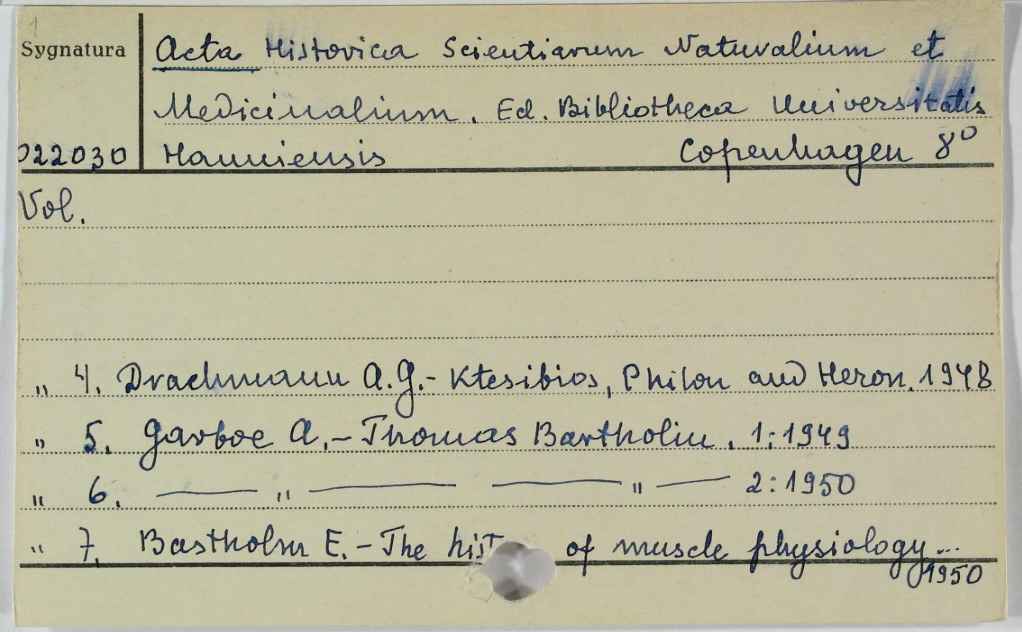 1
Sygnatura Acta Historica Scientiarum Naturalium et
Medicinalium. Ed. Bibliotheca Universitatis
022030 Hauniensis Copenhagen 8°
Vol.
„ 4. Drachmann A.G.- Ktesibios, Philon and Heron. 1948
„ 5. Garboe A.- Thomas Bartholin. 1:1949
„ 6. — „ — — „ — 2:1950
„ 7. Bastholm E.- The hist of muscle physiology...
1950